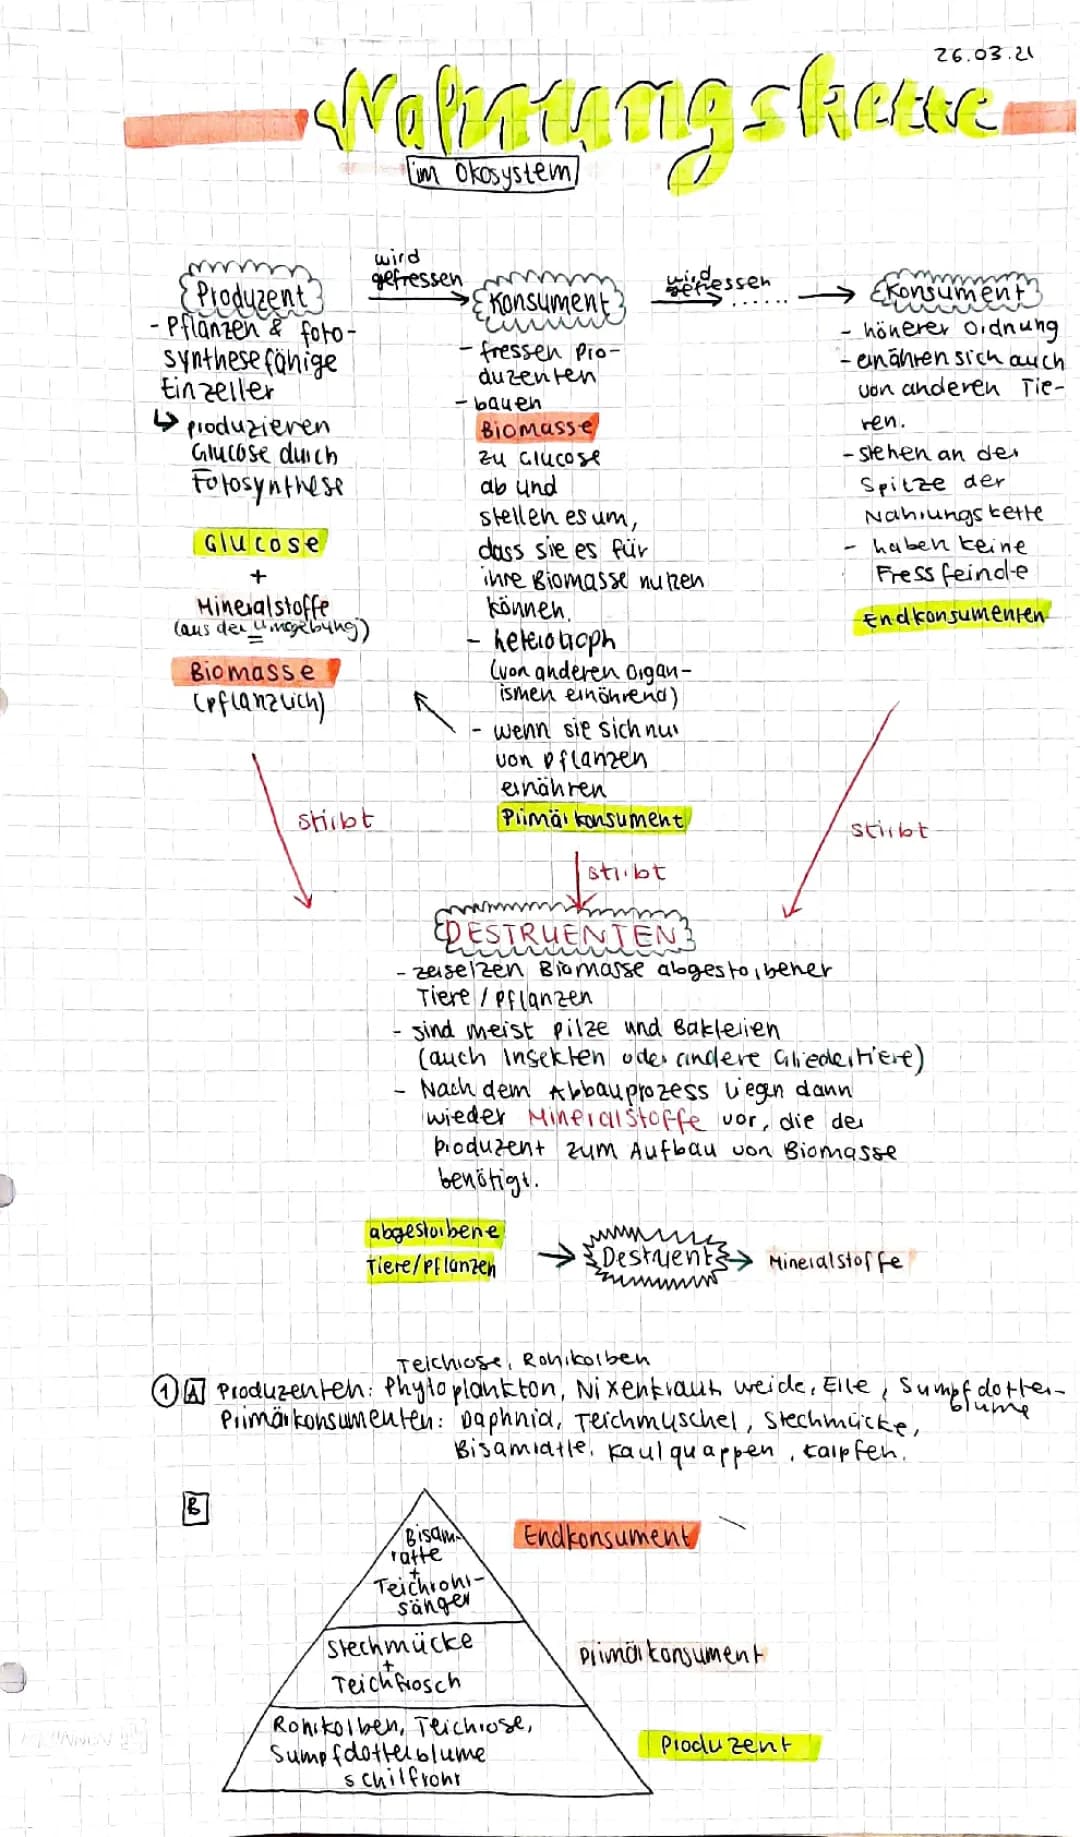 26.03.21
Nahrungskette
im Ökosystem
wird
gefressen
wird
gefressen ......
Produzent
- Pflanzen & foto-
synthesefähige
Einzeller
↳ produzieren
Glucose durch
Fotosynthese
Glucose
+
Mineralstoffe
(aus der Umgebung)
Biomasse
(pflanzlich)
Konsument
- fressen Pro-
duzenten
- bauen
Biomasse
zu Glucose
ab und
stellen es um,
dass sie es für
ihre Biomasse nutzen
können.
- heterotroph
(von anderen Organ-
ismen ernährend)
- wenn sie sich nur
von Pflanzen
ernähren
Primärkonsument
Konsument
- höherer Ordnung
- ernähren sich auch
von anderen Tie-
ren.
- stehen an der
Spitze der
Nahrungskette
- haben keine
Fressfeinde
Endkonsumenten
stirbt
stirbt
stirbt
DESTRUENTEN
- zersetzen Biomasse abgestorbener
Tiere / Pflanzen
- sind meist Pilze und Bakterien
(auch Insekten oder andere Gliedertiere)
- Nach dem Abbauprozess liegen dann
wieder Mineralstoffe vor, die der
Produzent zum Aufbau von Biomasse
benötigt.
abgestorbene
Tiere/Pflanzen
→ Destruent → Mineralstoffe
Teichrose, Rohrkolben
① A Produzenten: Phytoplankton, Nixenkraut, Weide, Erle, Sumpfdotter-
blume
Primärkonsumenten: Daphnia, Teichmuschel, Stechmücke,
Bisamratte, Kaulquappen, Karpfen.
B
Bisam-
ratte
+
Teichrohr-
sänger
Endkonsument
Stechmücke
+
Teichfrosch
Primärkonsument
Rohrkolben, Teichrose,
Sumpfdotterblume
Schilfrohr
Produzent